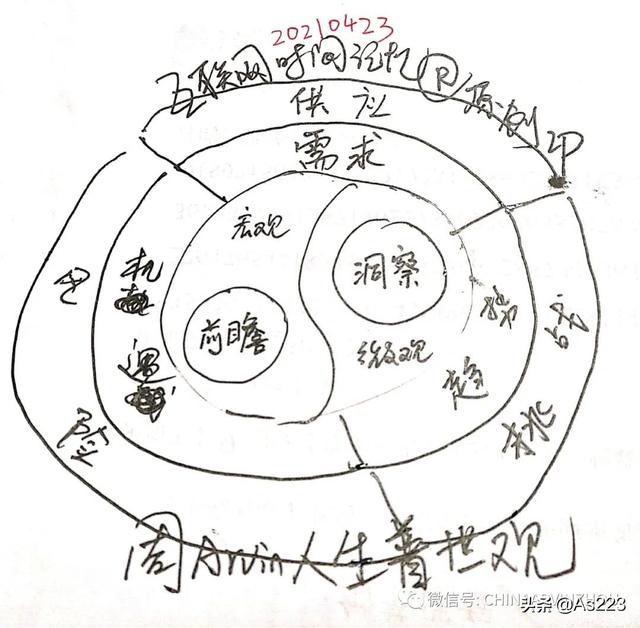 20210423
互联网时间记忆®/原创IP
供应
需求
宏观
洞察
机遇
前瞻
微观
趋势
挑战
险
周Arvin人生普世观
微信号: CHINAARVINZHOU
头条 @As223